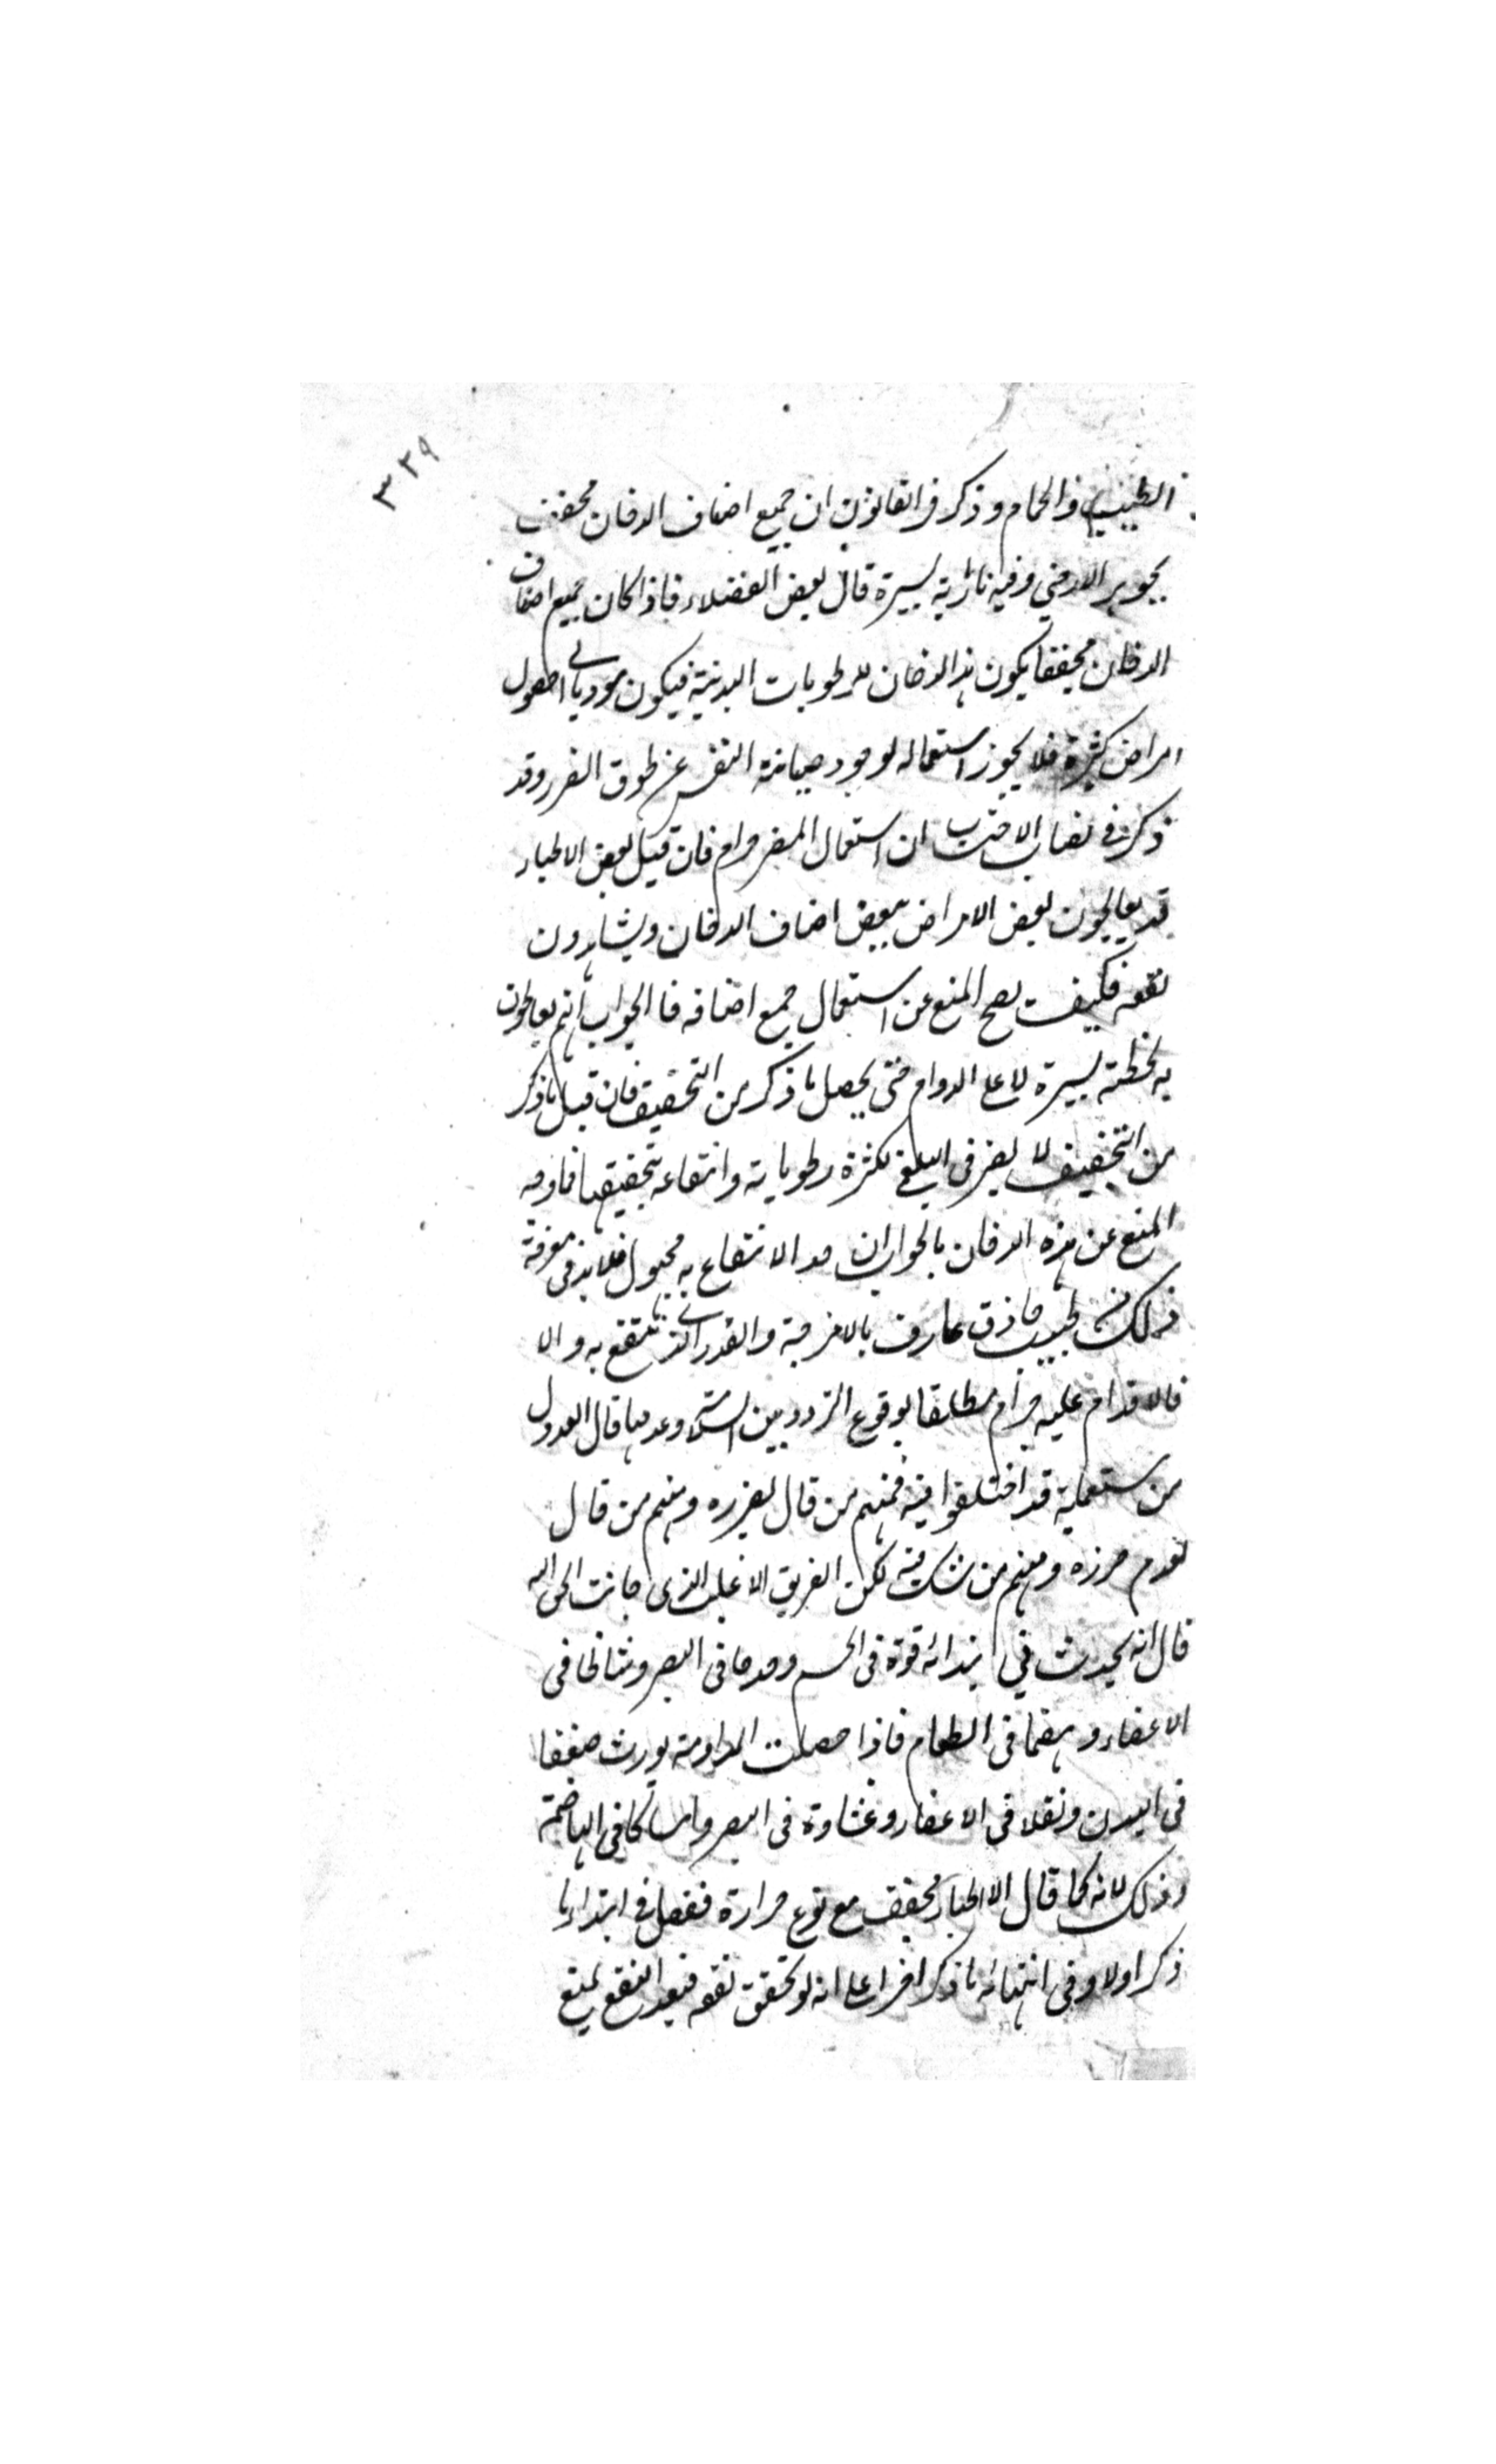 ٣٢٩
الطبيب والحمام وذكر فى القانون ان جميع اصناف الدخان مجفف
بجوهر الارضي وفيه نارية يسيرة قال بعض الفضلاء فاذا كان جميع اصناف
الدخان مجففا يكون هذا الدخان للرطوبات البدنية فيكون موديا الى حصول
امراض كثيرة فلا يجوز استعماله لوجود صيانة النفس عن لحوق الضرر وقد
ذكر فى نصاب الاحتساب ان استعمال المضر حرام فان قيل بعض الاطباء
قد يعالجون بعض الامراض ببعض اصناف الدخان ويشاهدون
نفعه فكيف يصح المنع عن استعمال جميع اصنافه فالجواب انهم يعالجون
به لحظة يسيرة لا على الدوام حتى يحصل ما ذكر من التجفيف فان قيل ما ذكر
من التجفيف لا يضر فى البلغمى لكثرة رطوباته وانتفاعه بتجفيفها فما وجه
المنع عن هذه الدخان فالجواب ان حد الانتفاع به مجهول فلا بد فى معرفة
ذلك من طبيب حاذق عارف بالامزجة والقدر الذى ينتفع به والا
فالاقدام عليه حرام مطلقا لوقوع التردد بين السلامة وعدمها قال العدول
من مستعمليه قد اختلفوا فيه فمنهم من قال بضرره ومنهم من قال
بعدم ضرره ومنهم من شك فيه لكن الفريق الاغلب الذى جانت الحق اليه
قال انه يحدث في ابتدائه قوة فى الحس وحدة فى البصر ونشاطا فى
الاعضاء وهضما فى الطعام فاذا حصلت المداومة يورث ضعفا
فى البدن وثقلا فى الاعضاء وغشاوة فى البصر وامساكا فى الهاضمة
وذلك لانه كما قال الاطباء مجفف مع نوع حرارة فيفعل فى ابتدائه ما
ذكر اولا وفى انتهائه ما ذكر اخرا على انه لو تحقق نفعه فبعد النفع يمنع